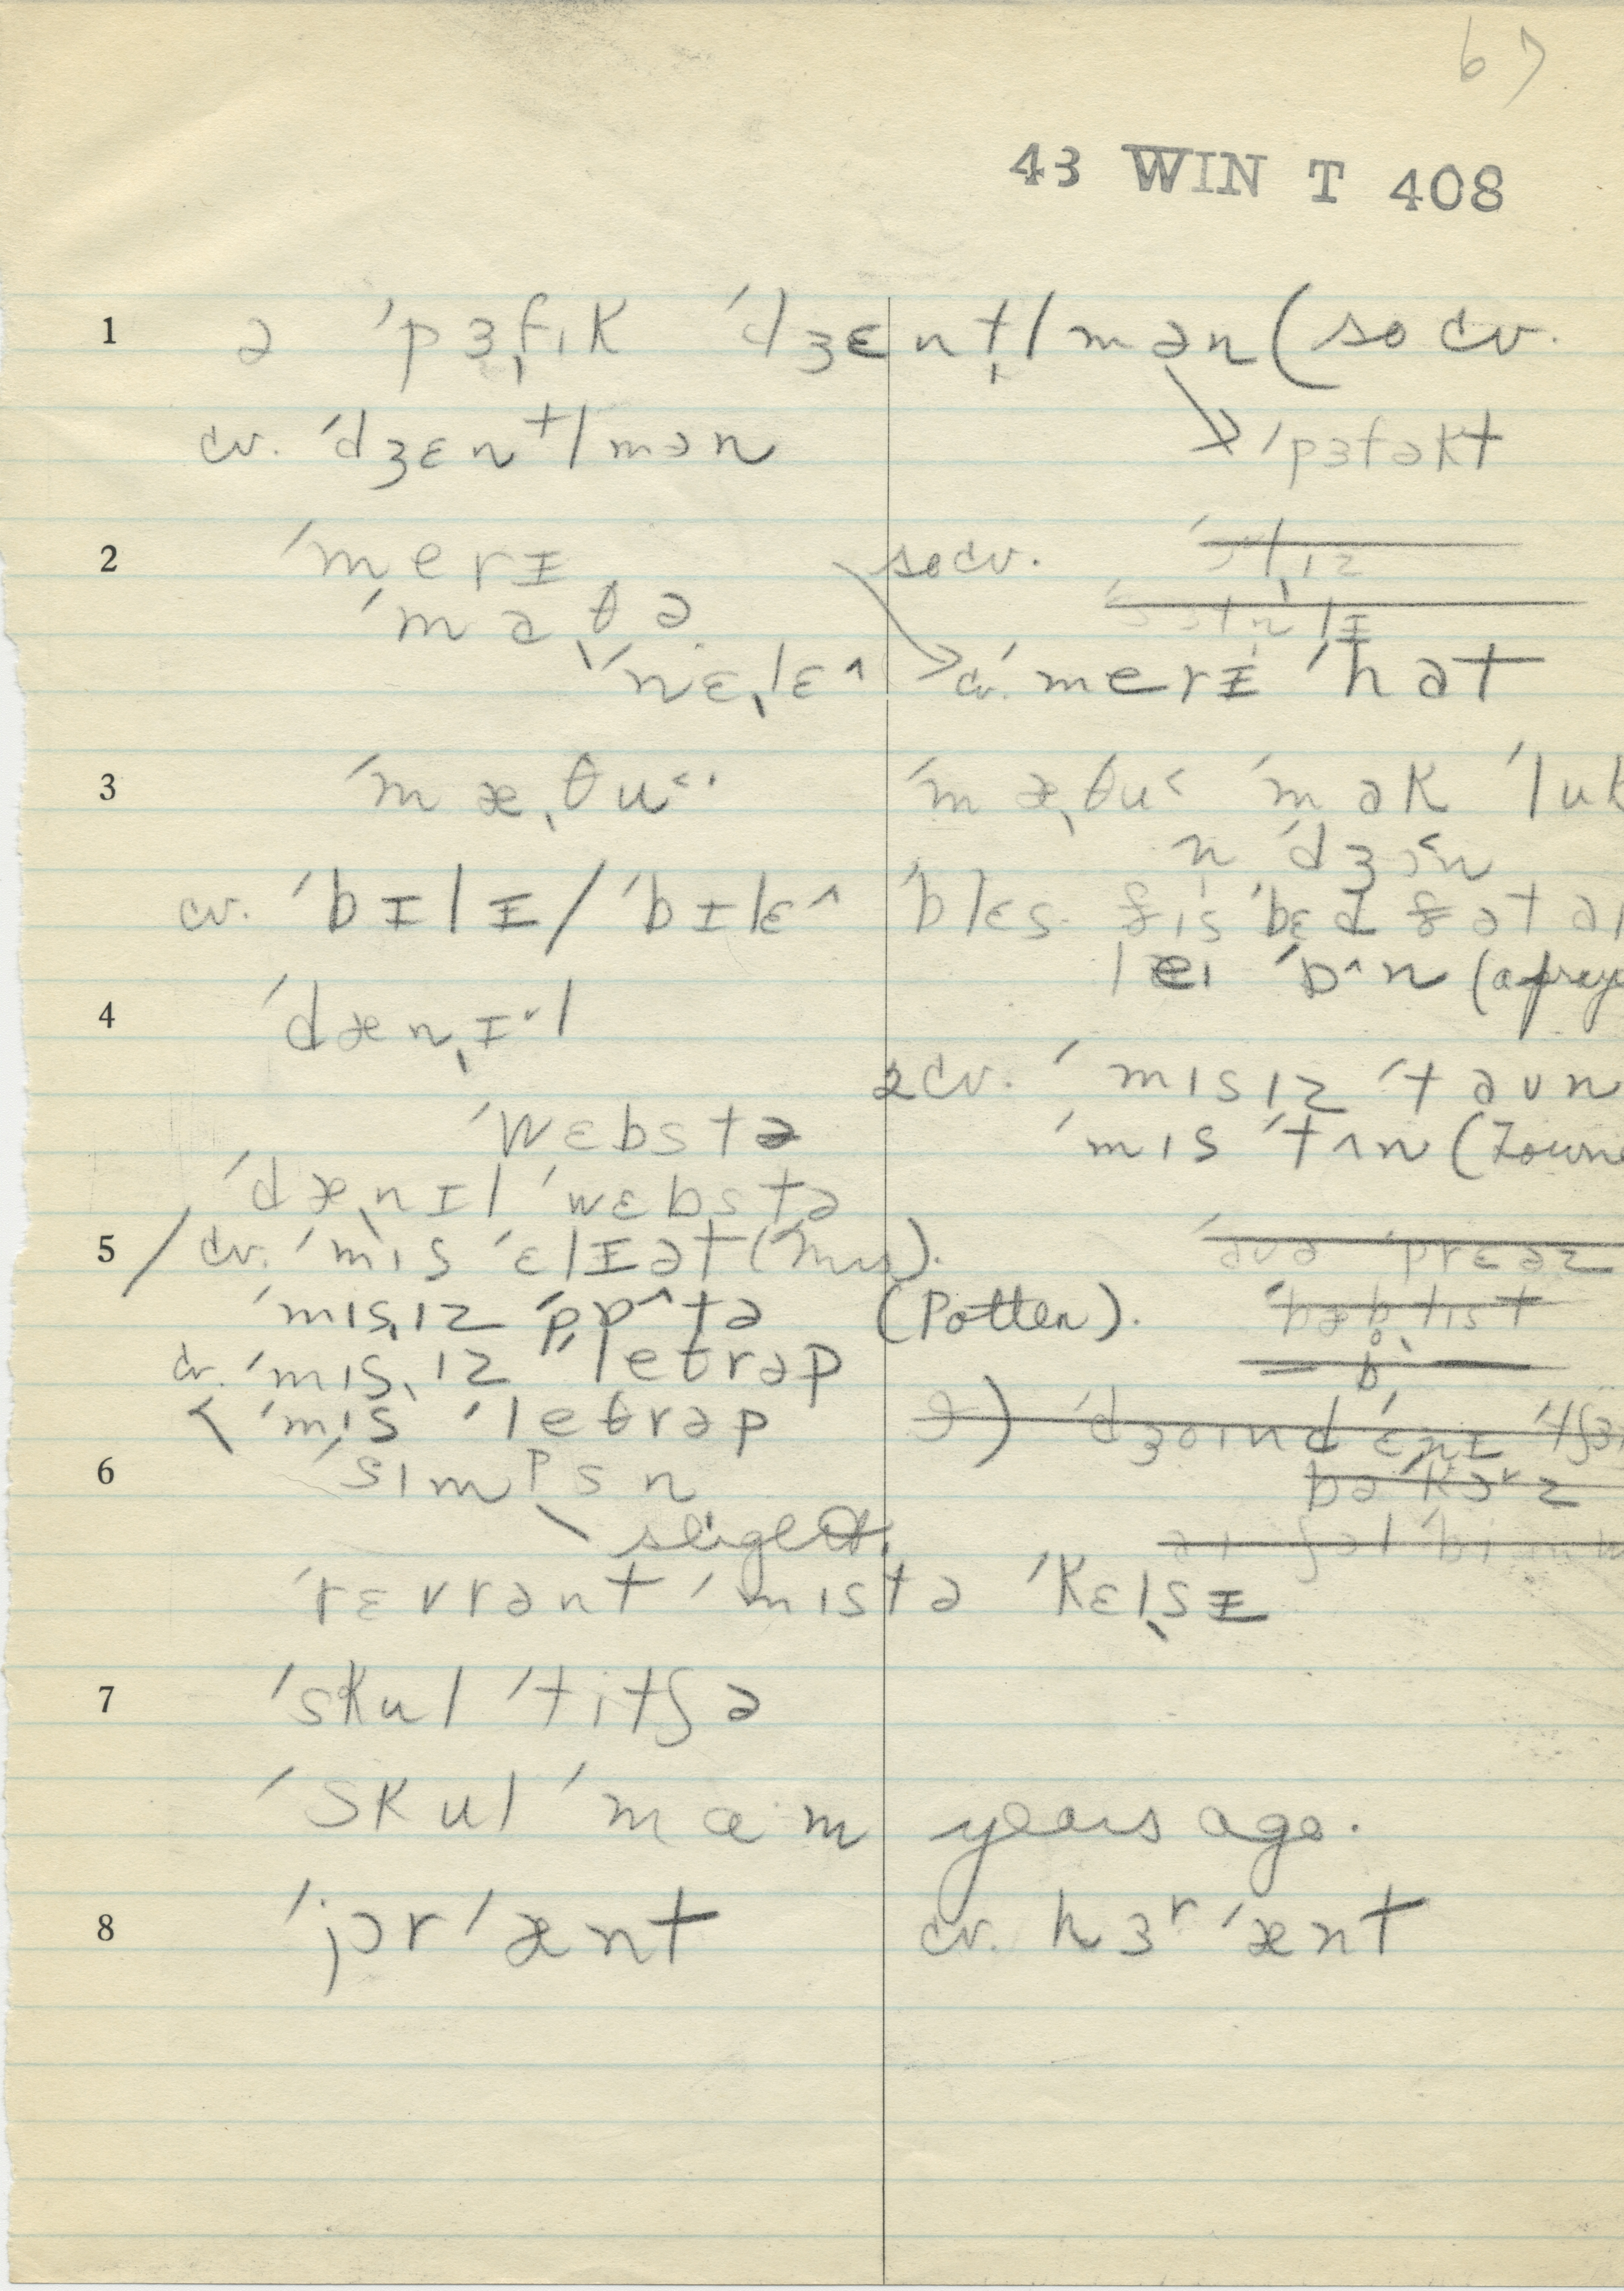 67
43 WIN T 408
1 ə ˈpɜˌfɪk ˈdʒɛnˌtlmən (so cv.
cv. ˈdʒɛnᵗlmən → ˈpɜfəkt
2 ˈmerɪ so cv.
ˈmaˌθə
ˈnɛˌlɛ^ → cv. ˈmerɪ ˈhat
3 ˈmæˌθu˂· ˈmæˌθu˂ ˈmak ˈluk
n ˈdʒɔ˂n
cv. ˈbɪlɪ / ˈbɪlɛ^ ˈblɛs ðɪs ˈbɛd ðət aɪ
leɪ ˈɒ^n (a praye
4 ˈdænˌɪ˅l
2 cv. ˈmɪsɪz ˈtaun
ˈwɛbstə ˈmɪs ˈtʌn (Towne
ˈdæˌnɪl ˈwɛbstə
5 / cv. ˈmɪs ˈɛlɪət (Mrs).
ˈmɪsˌɪz ˈpɒ^tə (Potter).
cv. ˈmɪsˌɪz ˈletrəp
< ˈmɪs ˈletrəp
6 ˈsɪmᵖsn
slight.
ˈrɛvrənt ˈmɪstə ˈkɛlˌsɪ
7 ˈskul ˈtitʃə
ˈskul ˈmam years ago.
8 ˈjɔr ˈænt cv. hɜʳ ˈænt